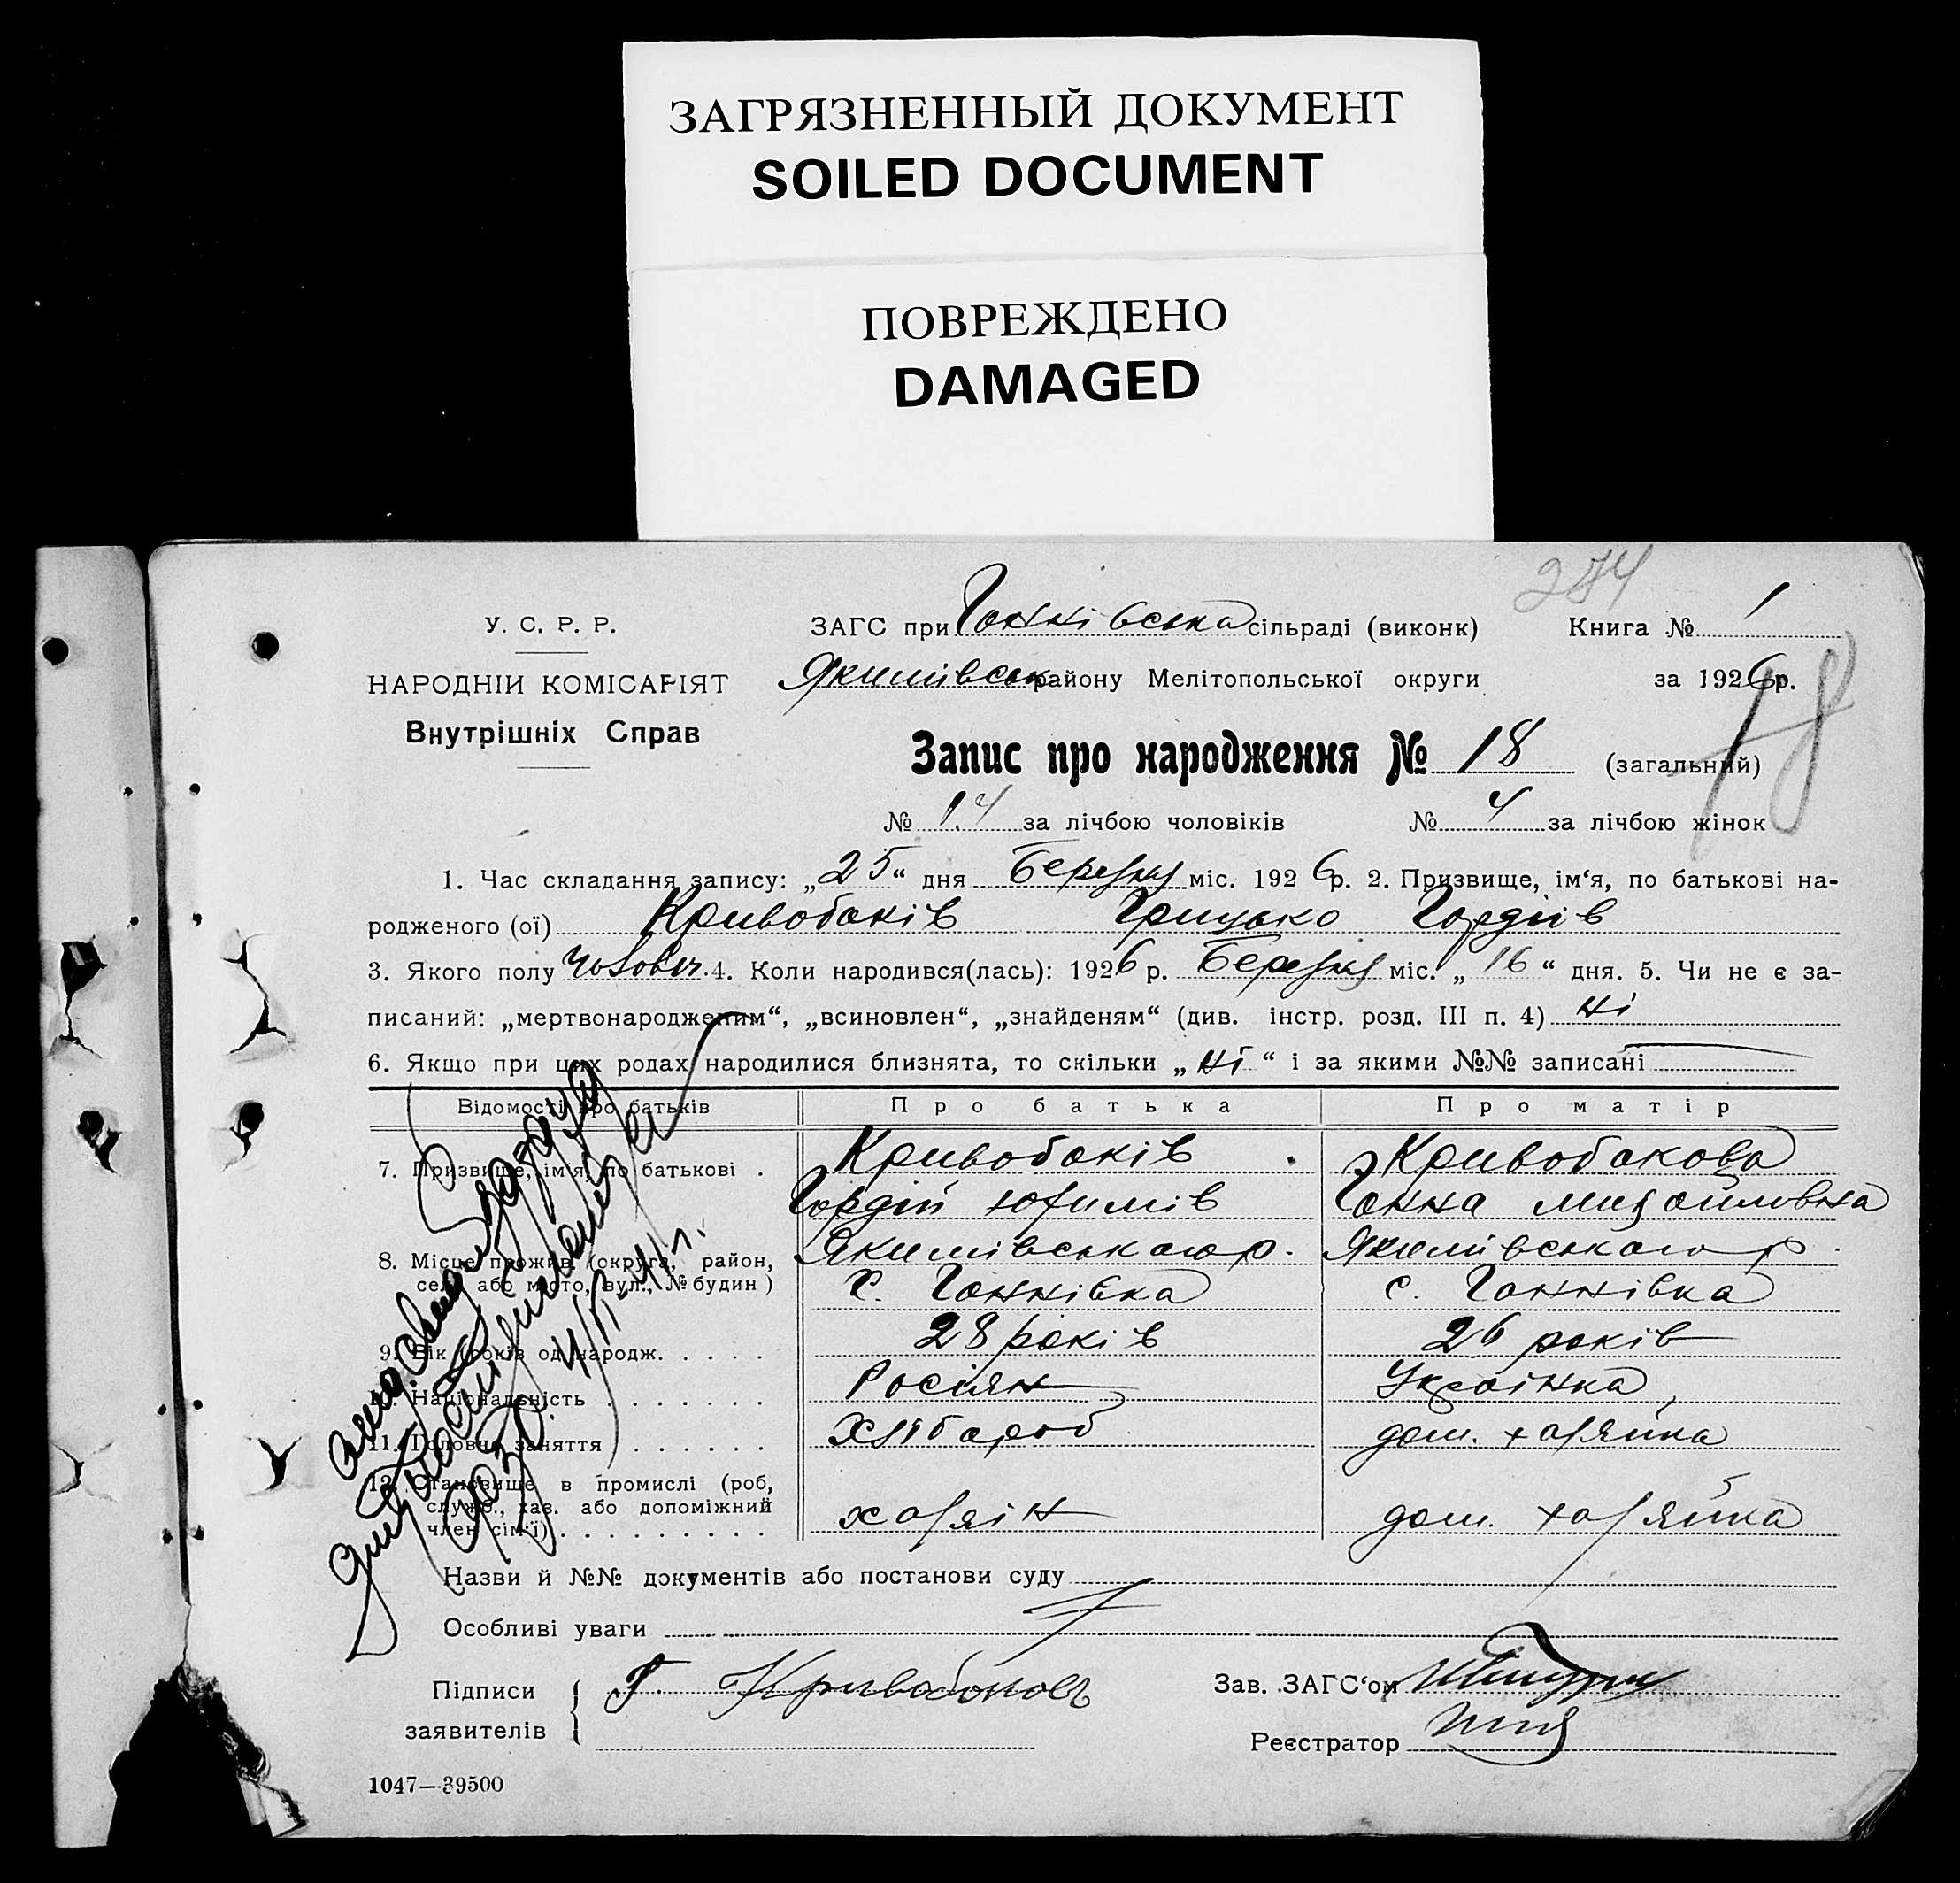 ЗАГРЯЗНЕННЫЙ ДОКУМЕНТ
SOILED DOCUMENT
ПОВРЕЖДЕНО
DAMAGED
274
У. С. Р. Р.
НАРОДНІЙ КОМІСАРІЯТ
Внутрішніх Справ
ЗАГС при Ганнівська сільраді (виконк) Книга № 1
Якимівськ району Мелітопольської округи за 1926 р.
18
Запис про народження № 18 (загальний)
№ 14 за лічбою чоловіків № 4 за лічбою жінок
1. Час складання запису: „25“ дня Березня міс. 1926 р. 2. Призвище, ім‘я, по батькові на-
родженого (ої) Кривобоків Грицько Гордіїв
3. Якого полу чоловіч. 4. Коли народився(лась): 1926 р. Березня міс. „16“ дня. 5. Чи не є за-
писаний: „мертвонародженим“, „всиновлен“, „знайденям“ (див. інстр. розд. III п. 4) ні
6. Якщо при цих родах народилися близнята, то скільки „ні“ і за якими №№ записані
Відомості про батьків Про батька Про матір
7. Призвище, ім‘я, по батькові . Кривобоків Кривобокова
Гордій Юхимів Ганна Михайловна
8. Місце прожив. (округа, район, Якимівського р. Якимівського р.
село або місто, вул., № будин) с. Ганнівка с. Ганнівка
9. Вік (років од народж. . . . . 28 років 26 років
10. Національність . . . . . . . Росіян Українка
11. Головне заняття . . . . . . Хлібороб дом. хазяйка
12. Становище в промислі (роб,
служб., хаз. або допоміжний
член сім‘ї) . . . . . . . . . хазяїн дом. хазяйка
Назви й №№ документів або постанови суду
Особливі уваги
Підписи
заявителів
Г. Кривобоков
Зав. ЗАГС‘ом
Реєстратор
1047—39500